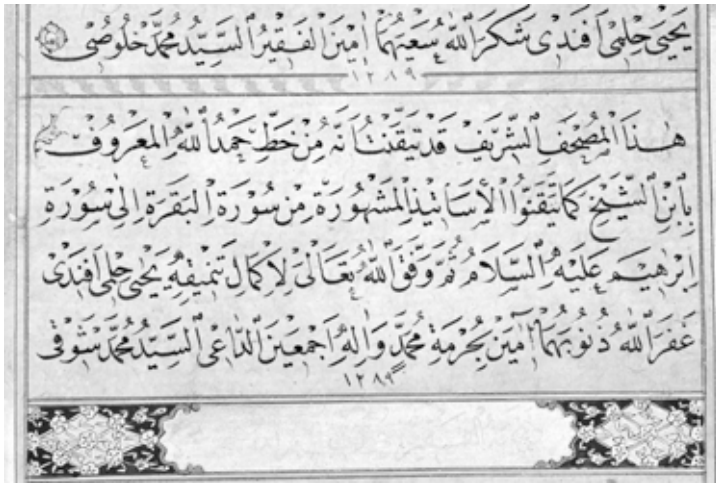 يَحْيَى حِلْمِى اَفَنْدِى شَكَرَ اللّٰهُ سَعْيَهُمَا اٰمِينَ الفَقِيرُ السَّيِّدُ مُحَمَّد خُلُوصِى
١٢٨٩
هٰذَا المُصْحَفُ الشَّرِيفُ قَدْ تَيَقَّنْتُ اَنَّهُ مِنْ خَطِّ حَمْدُ اللّٰهِ المَعْرُوفِ
بِابْنِ الشَّيْخِ كَمَا تَيَقَّنُوا الْأَسَاتِيذُ المَشْهُورَةُ مِنْ سُورَةِ البَقَرَةِ اِلٰى سُورَةِ
اِبْرٰهِيمَ عَلَيْهِ السَّلَامُ ثُمَّ وَفَّقَ اللّٰهُ تَعَالٰى لِاِكْمَالِ تَنْمِيقِهِ يَحْيٰى حِلْمِى اَفَنْدِى
غَفَرَ اللّٰهُ ذُنُوبَهُمَا اٰمِينَ بِحُرْمَةِ مُحَمَّدٍ وَاٰلِهِ اَجْمَعِينَ الدَّاعِى السَّيِّدُ مُحَمَّد شَوْقِى
١٢٨٩